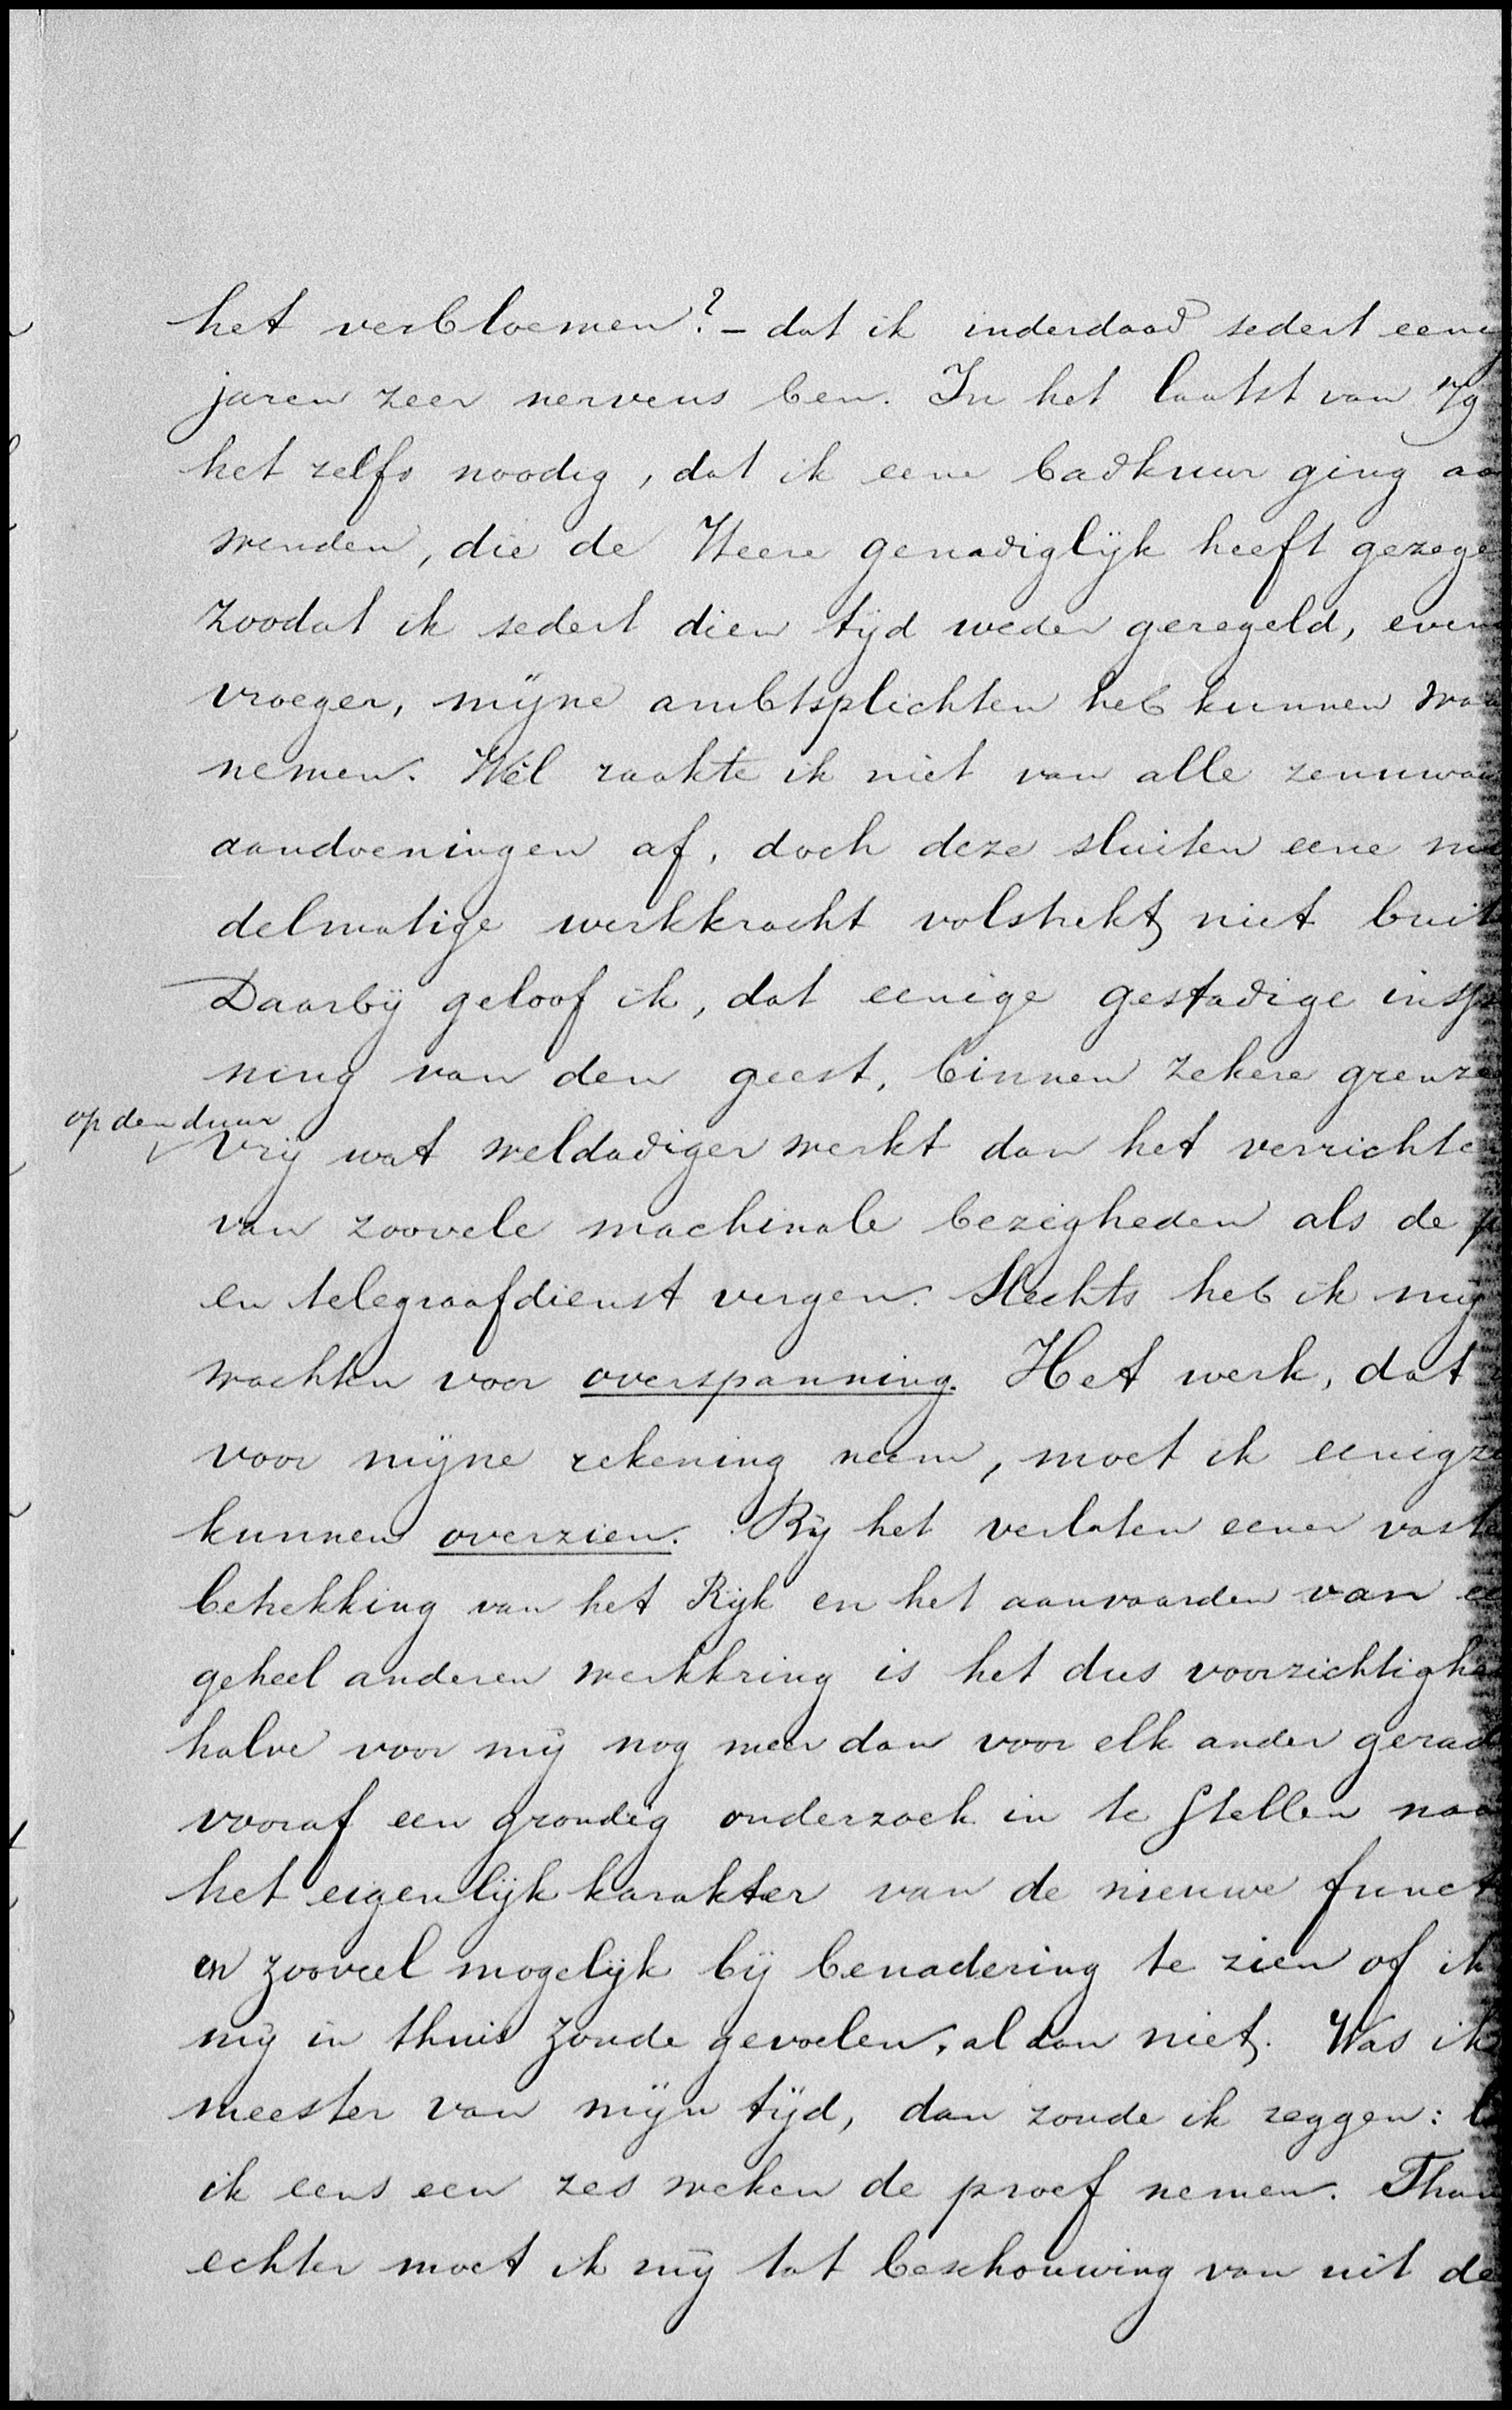 het verbloemen? – dat ik inderdaad sedert eeni
jaren zeer nerveus ben. In het laatst van '79
het zelfs noodig, dat ik eene badkuur ging aa
wenden, die de Heere genadiglijk heeft gezege
zoodat ik sedert dien tijd weder geregeld, even
vroeger, mijne ambtsplichten heb kunnen waa
nemen. Wèl raakte ik niet van alle zenuwaa
aandoeningen af, doch deze sluiten eene mid
delmatige werkkracht volstrekt niet buit
Daarbij geloof ik, dat eenige gestadige insp
ning van den geest, binnen zekere grenze
op den duur
vrij wat weldadiger werkt dan het verrichte
van zoovele machinale bezigheden als de p
en telegraafdienst vergen. Slechts heb ik mij
wachten voor overspanning. Het werk, dat
voor mijne rekening neem, moet ik eenigzi
kunnen overzien. Bij het verlaten eener vaste
betrekking van het Rijk en het aanvaarden van ee
geheel anderen werkkring is het dus voorzichtighe
halve voor mij nog meer dan voor elk ander gerad
vooraf een grondig onderzoek in te stellen naa
het eigenlijk karakter van de nieuwe funct
en zooveel mogelijk bij benadering te zien of ik
mij in thuis zoude gevoelen, al dan niet. Was ik
meester van mijn tijd, dan zoude ik zeggen: l
ik eens een zes weken de proef nemen. Than
echter moet ik mij tot beschouwing van uit de